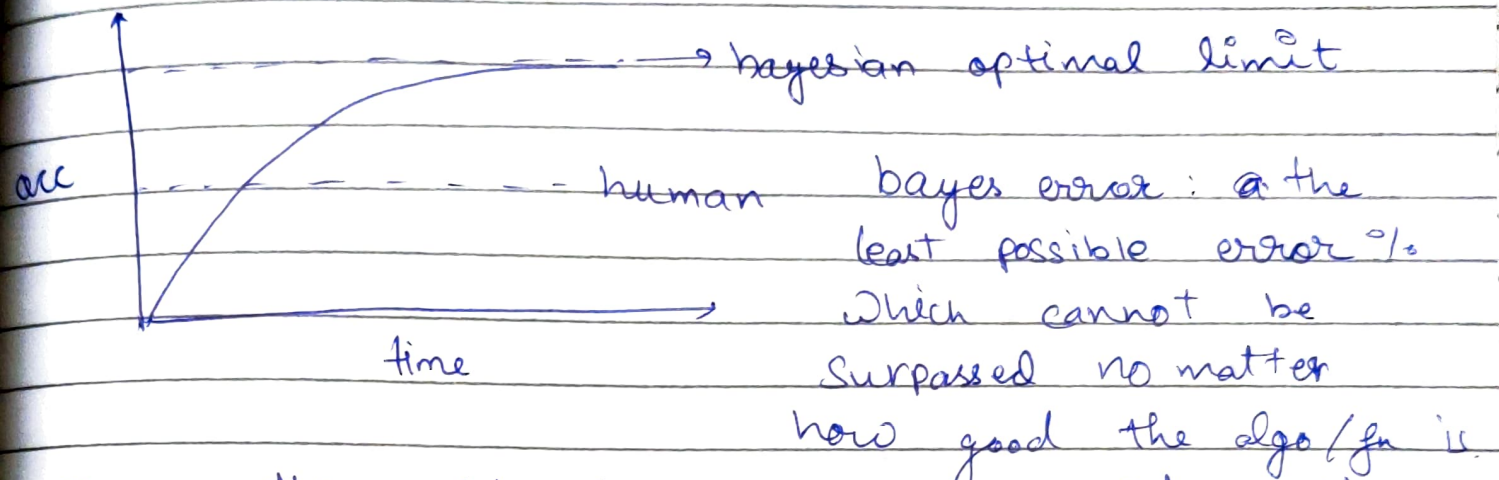 bayesian optimal limit
acc
human
bayes error : the
least possible error %
which cannot be
time
surpassed no matter
how good the algo/fn is